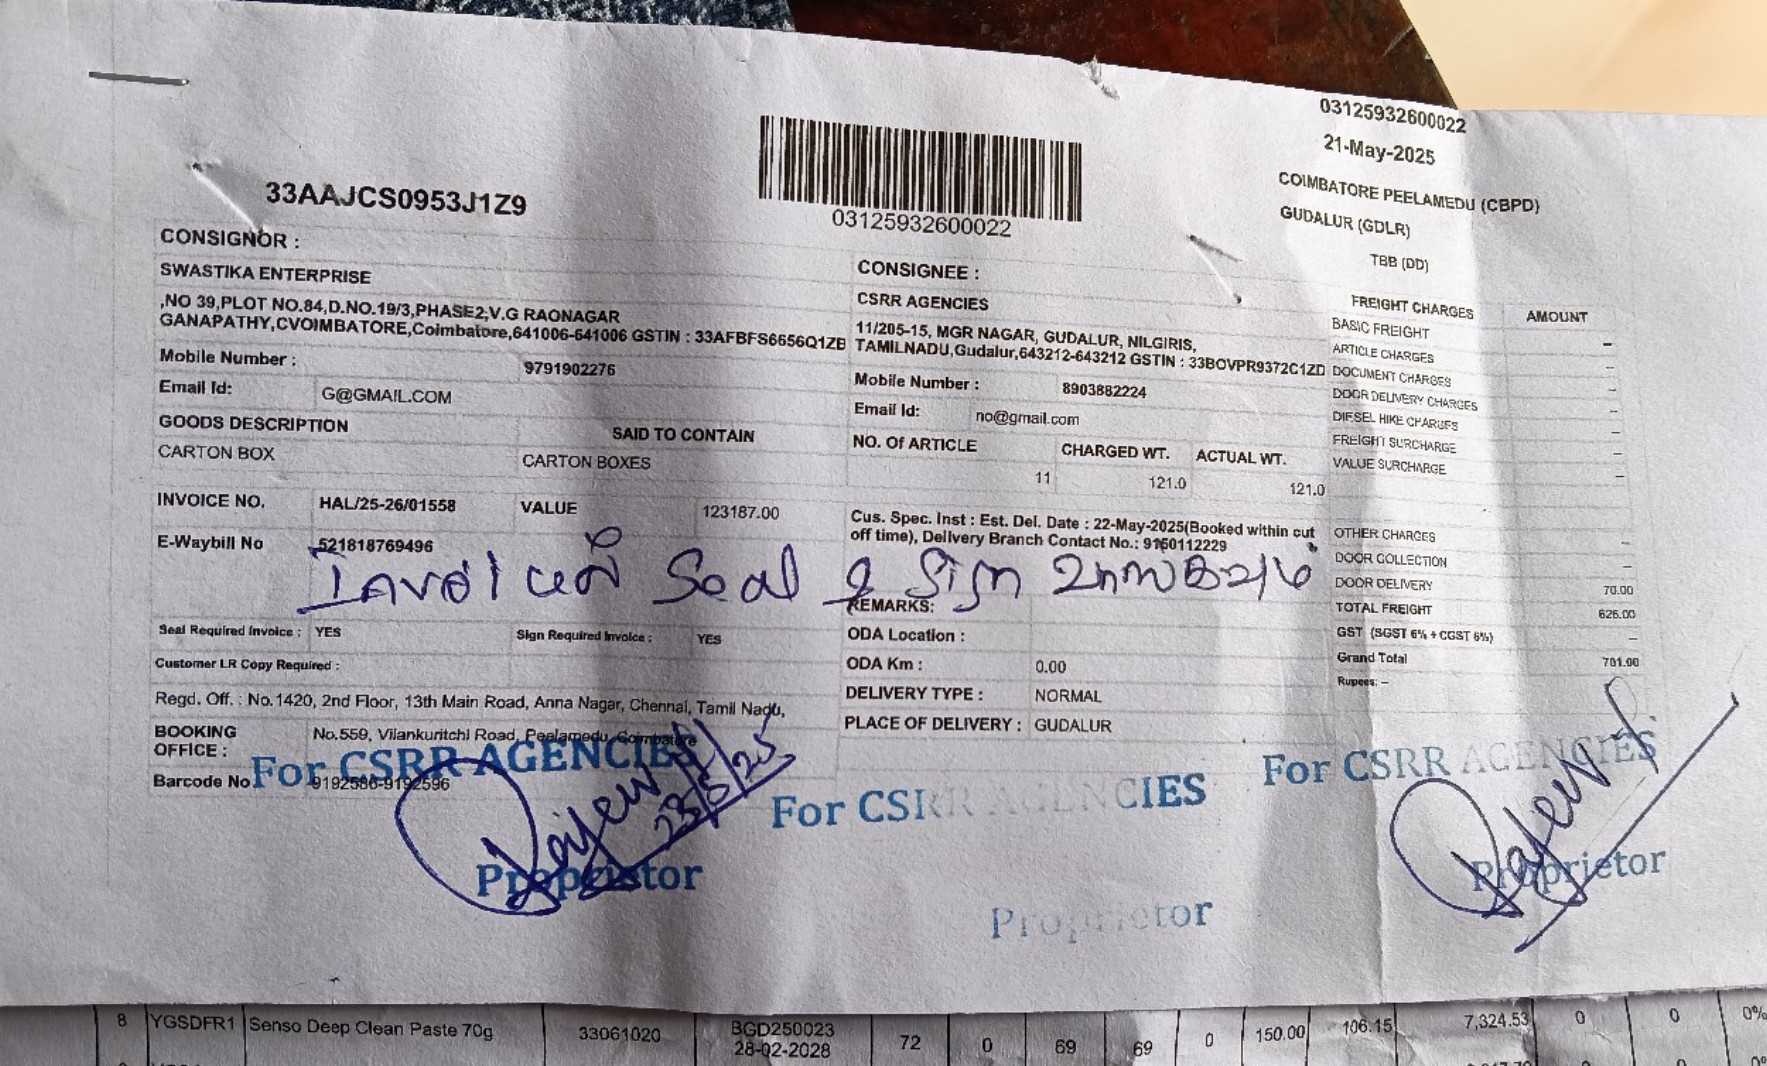 03125932600022
21-May-2025
COIMBATORE PEELAMEDU (CBPD)
GUDALUR (GDLR)
TBB (DD)
33AAJCS0953J1Z9
03125932600022
CONSIGNOR :
SWASTIKA ENTERPRISE
,NO 39,PLOT NO.84,D.NO.19/3,PHASE2,V.G RAONAGAR
GANAPATHY,CVOIMBATORE,Coimbatore,641006-641006 GSTIN : 33AFBFS6656Q1ZB
Mobile Number : 9791902276
Email Id: G@GMAIL.COM
GOODS DESCRIPTION SAID TO CONTAIN
CARTON BOX CARTON BOXES
INVOICE NO. HAL/25-26/01558 VALUE 123187.00
E-Waybill No 521818769496
CONSIGNEE :
CSRR AGENCIES
11/205-15, MGR NAGAR, GUDALUR, NILGIRIS,
TAMILNADU,Gudalur,643212-643212 GSTIN : 33BOVPR9372C1ZD
Mobile Number : 8903882224
Email Id: no@gmail.com
NO. Of ARTICLE CHARGED WT. ACTUAL WT.
11 121.0 121.0
Cus. Spec. Inst : Est. Del. Date : 22-May-2025(Booked within cut
off time), Delivery Branch Contact No.: 9150112229
FREIGHT CHARGES AMOUNT
BASIC FREIGHT –
ARTICLE CHARGES –
DOCUMENT CHARGES –
DOOR DELIVERY CHARGES –
DIESEL HIKE CHARGES –
FREIGHT SURCHARGE –
VALUE SURCHARGE –
OTHER CHARGES –
DOOR COLLECTION –
DOOR DELIVERY 70.00
TOTAL FREIGHT 626.00
GST (SGST 6% + CGST 6%) –
Grand Total 701.00
Rupees: –
Seal & Sign
REMARKS:
Seal Required Invoice : YES Sign Required Invoice : YES
Customer LR Copy Required :
ODA Location :
ODA Km : 0.00
DELIVERY TYPE : NORMAL
PLACE OF DELIVERY : GUDALUR
Regd. Off. : No.1420, 2nd Floor, 13th Main Road, Anna Nagar, Chennai, Tamil Nadu,
BOOKING OFFICE : No.559, Vilankuritchi Road, Peelamedu, Coimbatore
Barcode No 9192586-9192596
For CSRR AGENCIES
23/5/25
Proprietor
For CSRR AGENCIES
Proprietor
For CSRR AGENCIES
Proprietor
8 YGSDFR1 Senso Deep Clean Paste 70g 33061020 BGD250023 72 0 69 69 0 150.00 106.15 7,324.53 0 0 0%
28-02-2028